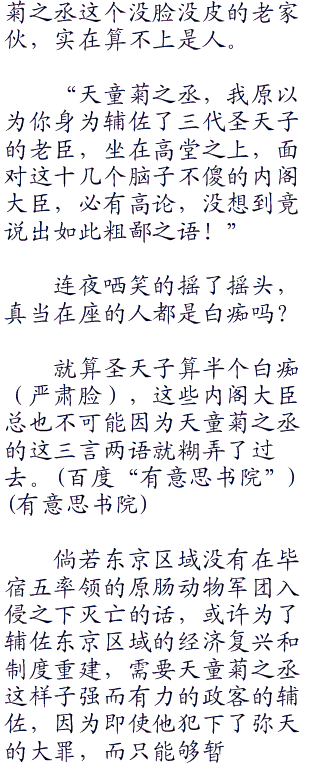 菊之丞这个没脸没皮的老家
伙，实在算不上是人。
“天童菊之丞，我原以
为你身为辅佐了三代圣天子
的老臣，坐在高堂之上，面
对这十几个脑子不傻的内阁
大臣，必有高论，没想到竟
说出如此粗鄙之语！”
连夜哂笑的摇了摇头，
真当在座的人都是白痴吗？
就算圣天子算半个白痴
（严肃脸），这些内阁大臣
总也不可能因为天童菊之丞
的这三言两语就糊弄了过
去。(百度“有意思书院”)
(有意思书院)
倘若东京区域没有在毕
宿五率领的原肠动物军团入
侵之下灭亡的话，或许为了
辅佐东京区域的经济复兴和
制度重建，需要天童菊之丞
这样子强而有力的政客的辅
佐，因为即使他犯下了弥天
的大罪，而只能够暂